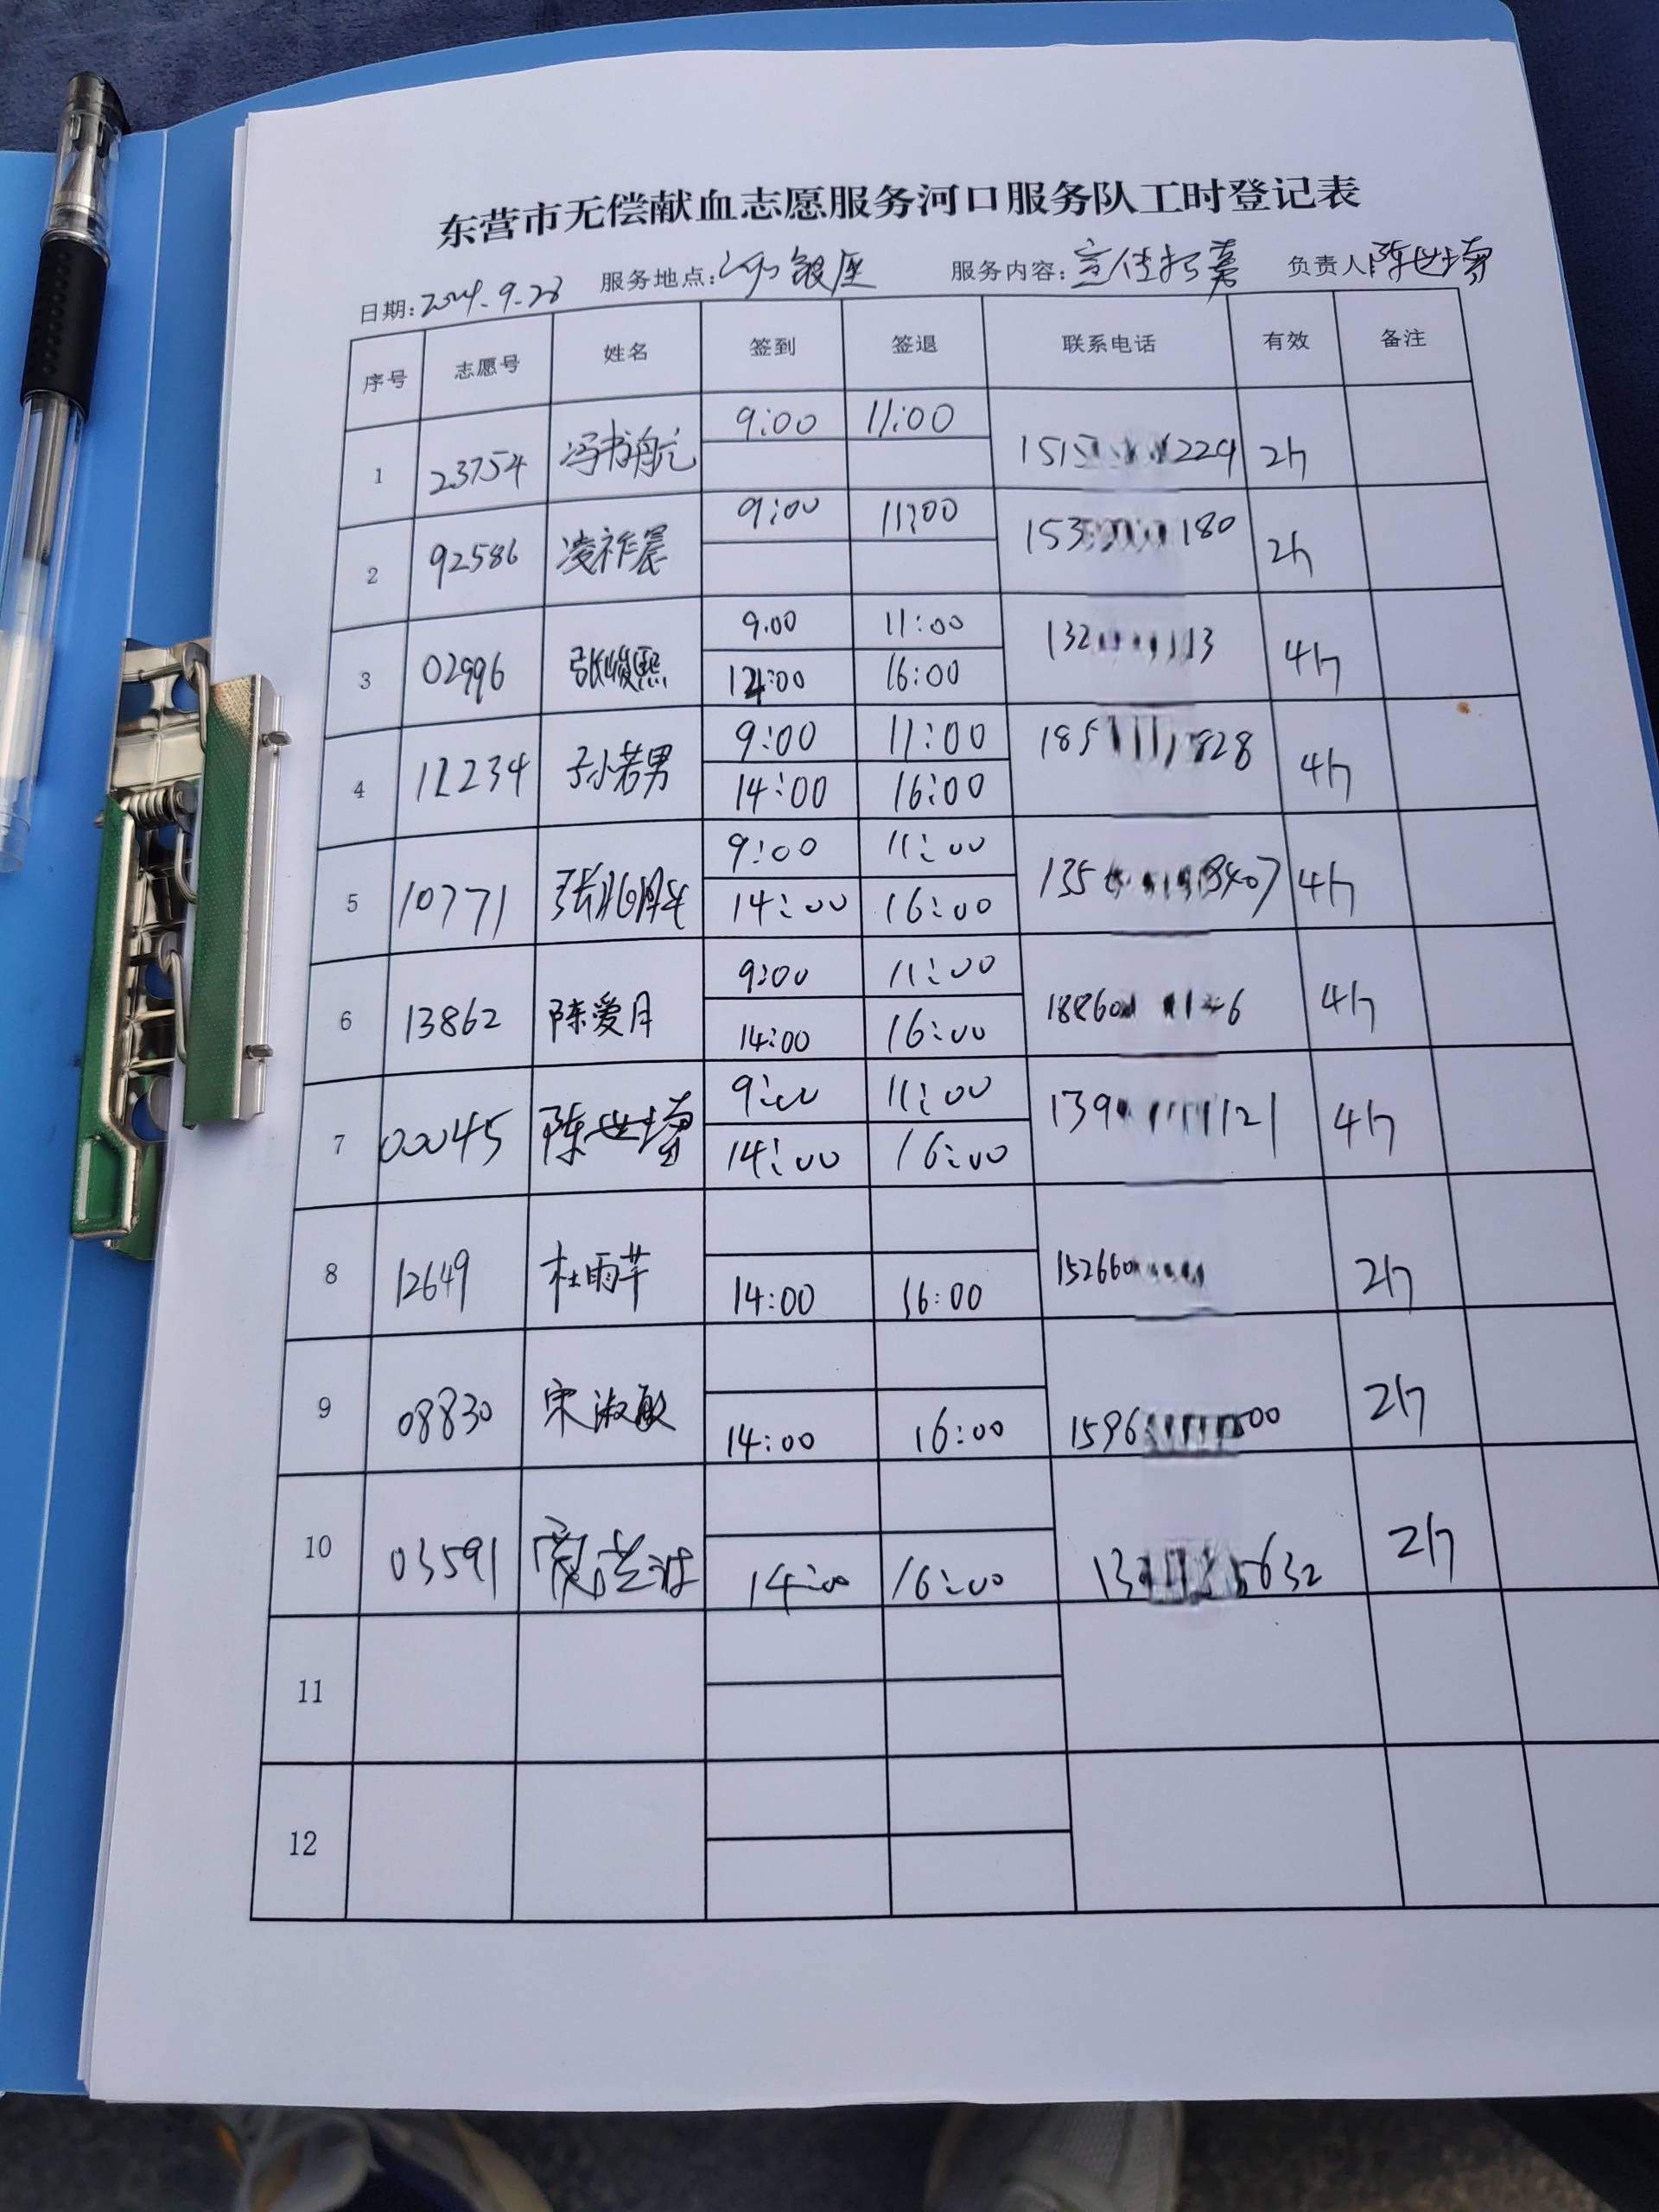 东营市无偿献血志愿服务河口服务队工时登记表
日期: 2024.9.28 服务地点: 河口银座 服务内容: 宣传招募 负责人
序号 志愿号 姓名 签到 签退 联系电话 有效 备注
1 23754 冯书航 9:00 11:00 2h
2 92586 凌祚晨 9:00 11:00 2h
3 02996 张峻熙 9:00 11:00 4h
14:00 16:00
4 11234 孙若男 9:00 11:00 4h
14:00 16:00
5 10771 9:00 11:00 4h
14:00 16:00
6 13862 陈爱月 9:00 11:00 4h
14:00 16:00
7 00045 9:00 11:00 4h
14:00 16:00
8 12649 杜雨芊 14:00 16:00 2h
9 08830 宋淑敏 14:00 16:00 2h
10 03591 14:00 16:00 2h
11
12